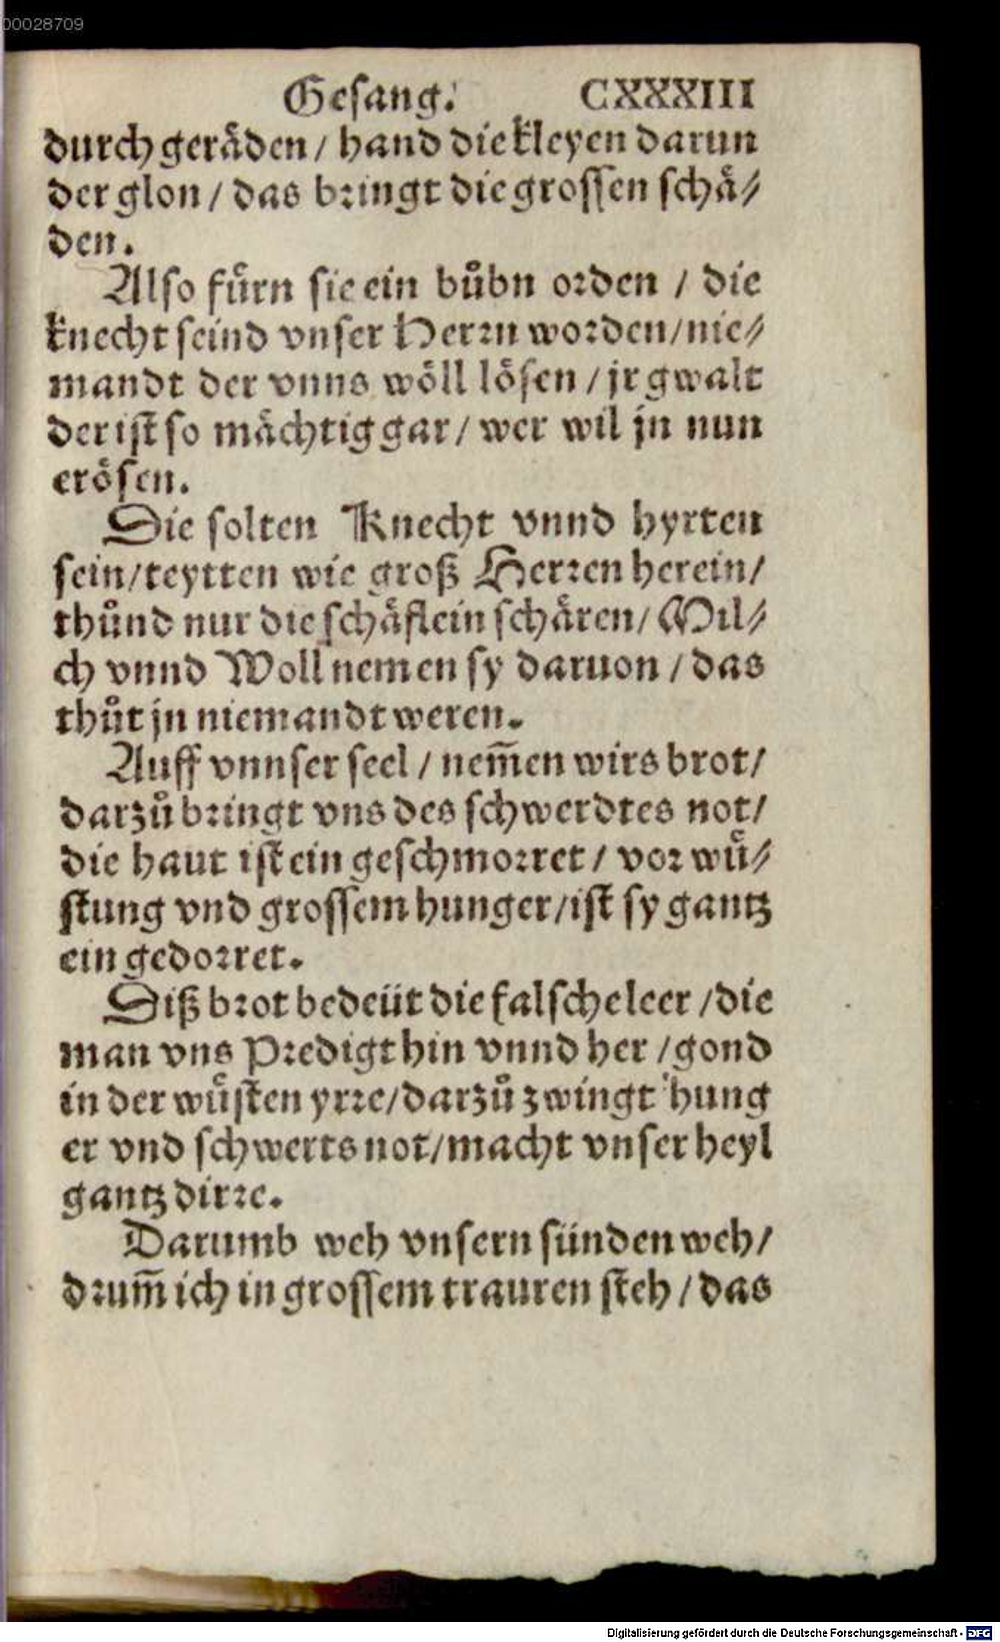 00028709
Gesang. CXXXIII
durch geråden / hand die kleyen darun
der glon / das bringt die grossen schå⸗
den.
Also fürn sie ein bůbn orden / die
knecht seind vnser Herrn worden/nie⸗
mandt der vnns wöll lösen / jr gwalt
der ist so mächtig gar / wer wil jn nun
erösen.
Die solten Knecht vnnd hyrten
sein/reytten wie groß Herren herein/
thůnd nur die schäflein schären/ Mil⸗
ch vnnd Woll nemen sy daruon / das
thůt jn niemandt weren.
Auff vnnser seel / nem̃en wirs brot/
darzů bringt vns des schwerdtes not/
die haut ist ein geschmorret / vor wü⸗
stung vnd grossem hunger/ist sy gantz
ein gedorret.
Diß brot bedeüt die falsche leer /die
man vns Predigt hin vnnd her /gond
in der wüsten yrre/darzů zwingt hung
er vnd schwerts not/macht vnser heyl
gantz dirre.
Darumb weh vnsern sünden weh/
drum̃ ich in grossem trauren steh / das
Digitalisierung gefördert durch die Deutsche Forschungsgemeinschaft - DFG